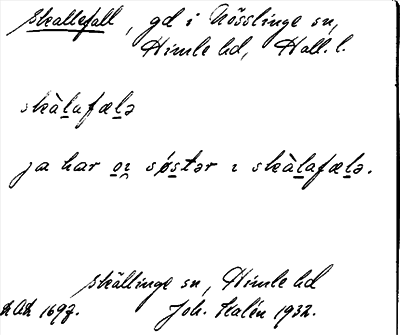 Skallefall, gd i Nösslinge sn,
Himle hd, Hall. l.
skàlafælə
ja har oɪ søstər ɪ skàlafælə.
Skällinge sn, Himle hd
Joh. Kalén 1932.